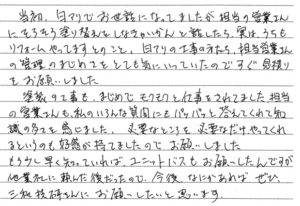 当初、白アリでお世話になってましたが担当の営業さん
にそろそろ塗り替えをしなきゃいかんと話したら、実は、うちも
リフォームやってますとのこと、白アリの工事の方たち、担当営業さん
の管理のまじめでとても気にいっていたのですぐ見積り
をお願いしました
塗装の工事も、まじめでモクモクと仕事をされてました担当
の営業さんも、私のいろんな質問にもパッパッと答えてくれて知
識の高さを感じました、必要なところを必要なだけやってくれ
るというのも好感が持てましたのでお願いしました
もう少し早く知っていれば、ユニットバスもお願いしたんですが
他業社に頼んだ後だったので、今後なにかあれば ぜひ、
三和技研さんにお願いしたいと思います。